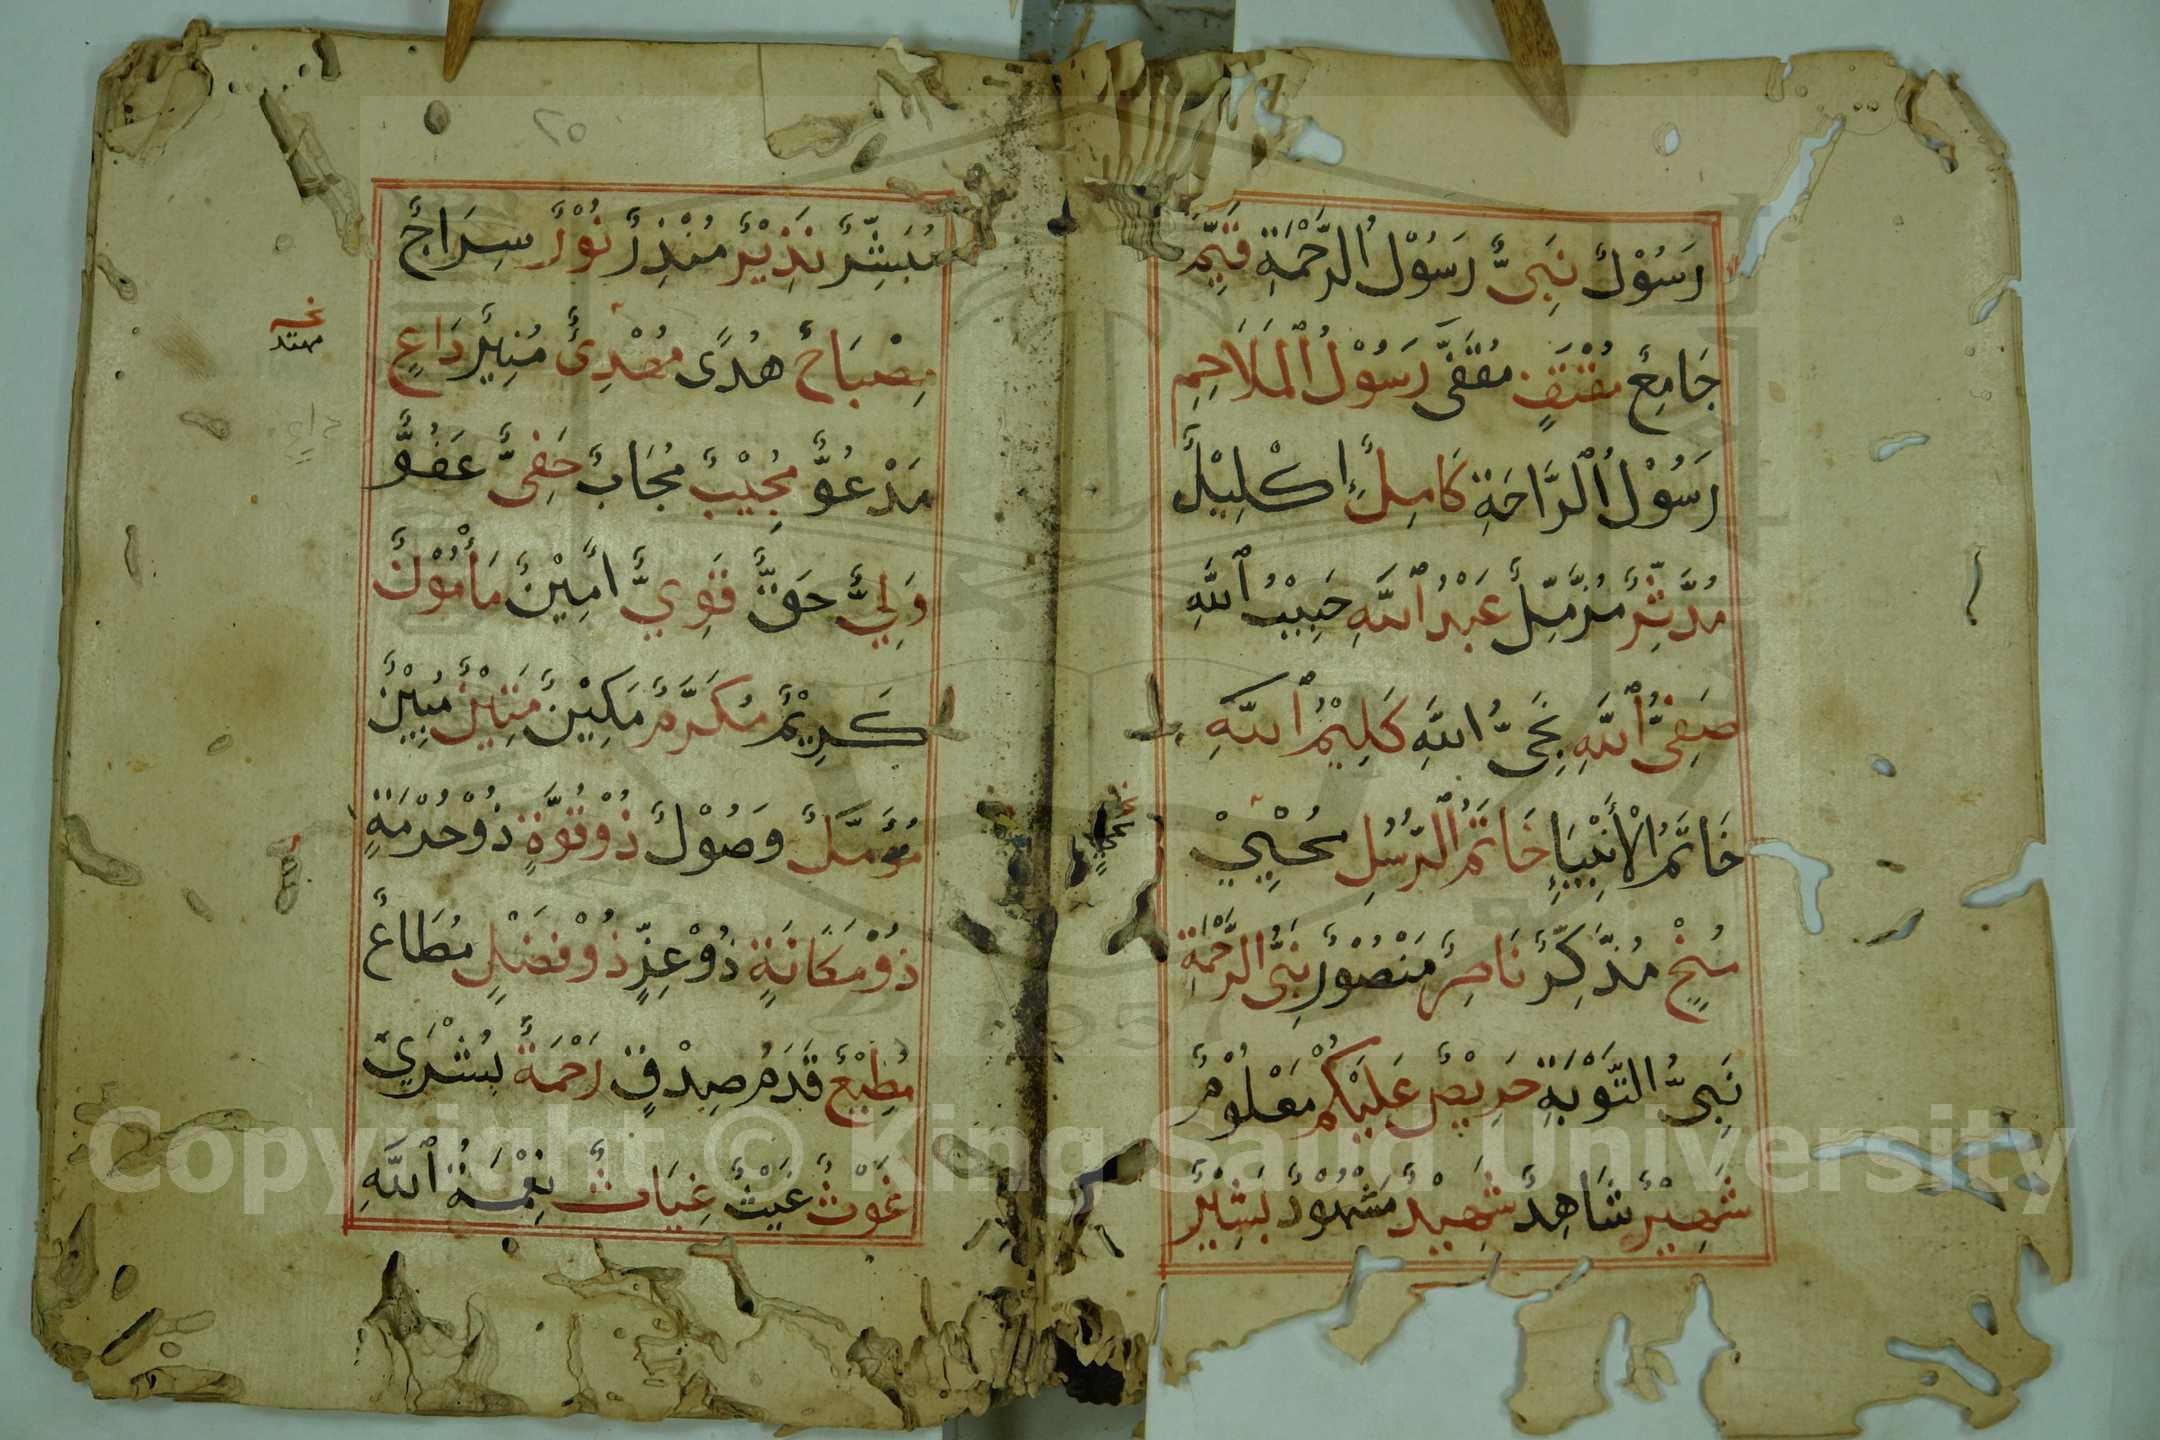 رَسُوْلٌ نَبِىٌّ رَسُوْلُ الرَّحْمَةِ قَيِّمٌ
جَامِعٌ مُقْتَفٍ مُقَفًّى رَسُوْلُ ٱلْمَلَاحِمِ
رَسُوْلُ ٱلرَّاحَةِ كَامِلٌ إِكْلِيْلٌ
مُدَّثِّرٌ مُزَّمِّلٌ عَبْدُ ٱللَّهِ حَبِيْبُ ٱللَّهِ
صَفِىُّ ٱللَّهِ نَجِىُّ اللَّهِ كَلِيْمُ ٱللَّهِ
خَاتَمُ الْأَنْبِيَاءِ خَاتَمُ ٱلرُّسُلِ مُحْيِيْ
مُنْجٍ مُذَكِّرٌ نَاصِرٌ مَنْصُوْرٌ نَبِىُّ الرَّحْمَةِ
نَبِىُّ التَّوْبَةِ حَرِيْصٌ عَلَيْكُمْ مَعْلُوْمٌ
شَهِيْرٌ شَاهِدٌ شَهِيْدٌ مَشْهُوْدٌ بَشِيْرٌ
مُبَشِّرٌ نَذِيْرٌ مُنْذِرٌ نُوْرٌ سِرَاجٌ
مِصْبَاحٌ هُدًى مُهْدِىٌ مُنِيْرٌ دَاعٍ
مَدْعُوٌّ مُجِيْبٌ مُجَابٌ حَفِىٌّ عَفُوٌّ
وَلِيٌّ حَقٌّ قَوِيٌّ امِّيْنٌ مَأْمُوْنٌ
كَرِيْمٌ مُكَرَّمٌ مَكِيْنٌ مَتِيْنٌ مُبِيْنٌ
مُؤَمَّلٌ وَصُوْلٌ ذُوْ قُوَّةٍ ذُوْ حُرْمَةٍ
ذُوْ مَكَانَةٍ ذُوْ عِزٍّ ذُوْ فَضْلٍ مُطَاعٌ
مُطِيْعٌ قَدَمُ صِدْقٍ رَحْمَةٌ بُشْرَىٰ
غَوْثٌ غَيْثٌ غِيَاثٌ نِعْمَةُ ٱللَّهِ
مهتد
٢٥
Copyright © King Saud University